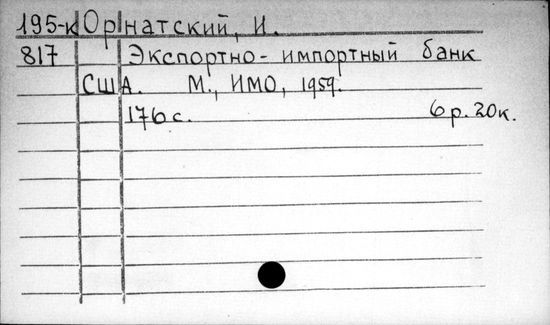 195-к Орнатский, И.
817 Экспортно-импортный банк
США. М., ИМО, 1959.
176 с. 6 р. 20 к.